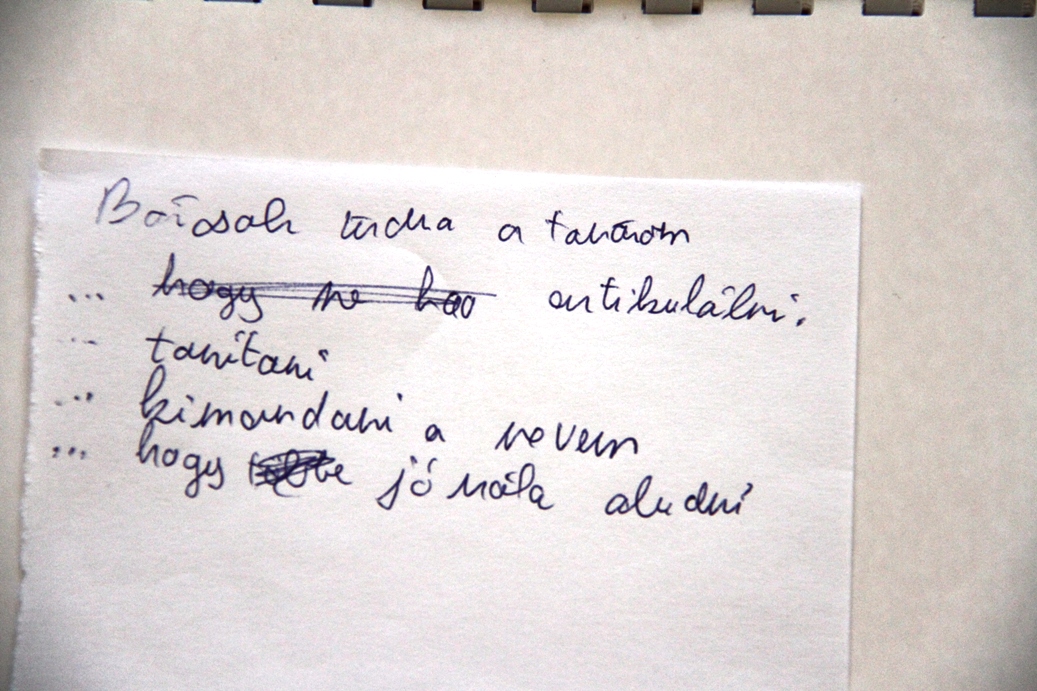 Bárcsak tudna a tanárom
... hogy ne artikulálni.
... tanítani
... kimondani a nevem
... hogy jó nála aludni